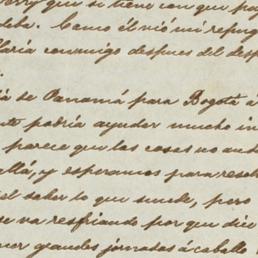 erry que se tiene con que pag
deba. Como él vió mi refug
llaria conmigo despues del desp
.
rá de Panamá para Bogotá á
nto podria ayudar mucho in
parece que las cosas no and
allá, y esperamos para resol
el saber lo que sucede, pero
se va resfriando por que dice
ner grandes jornadas á caballo